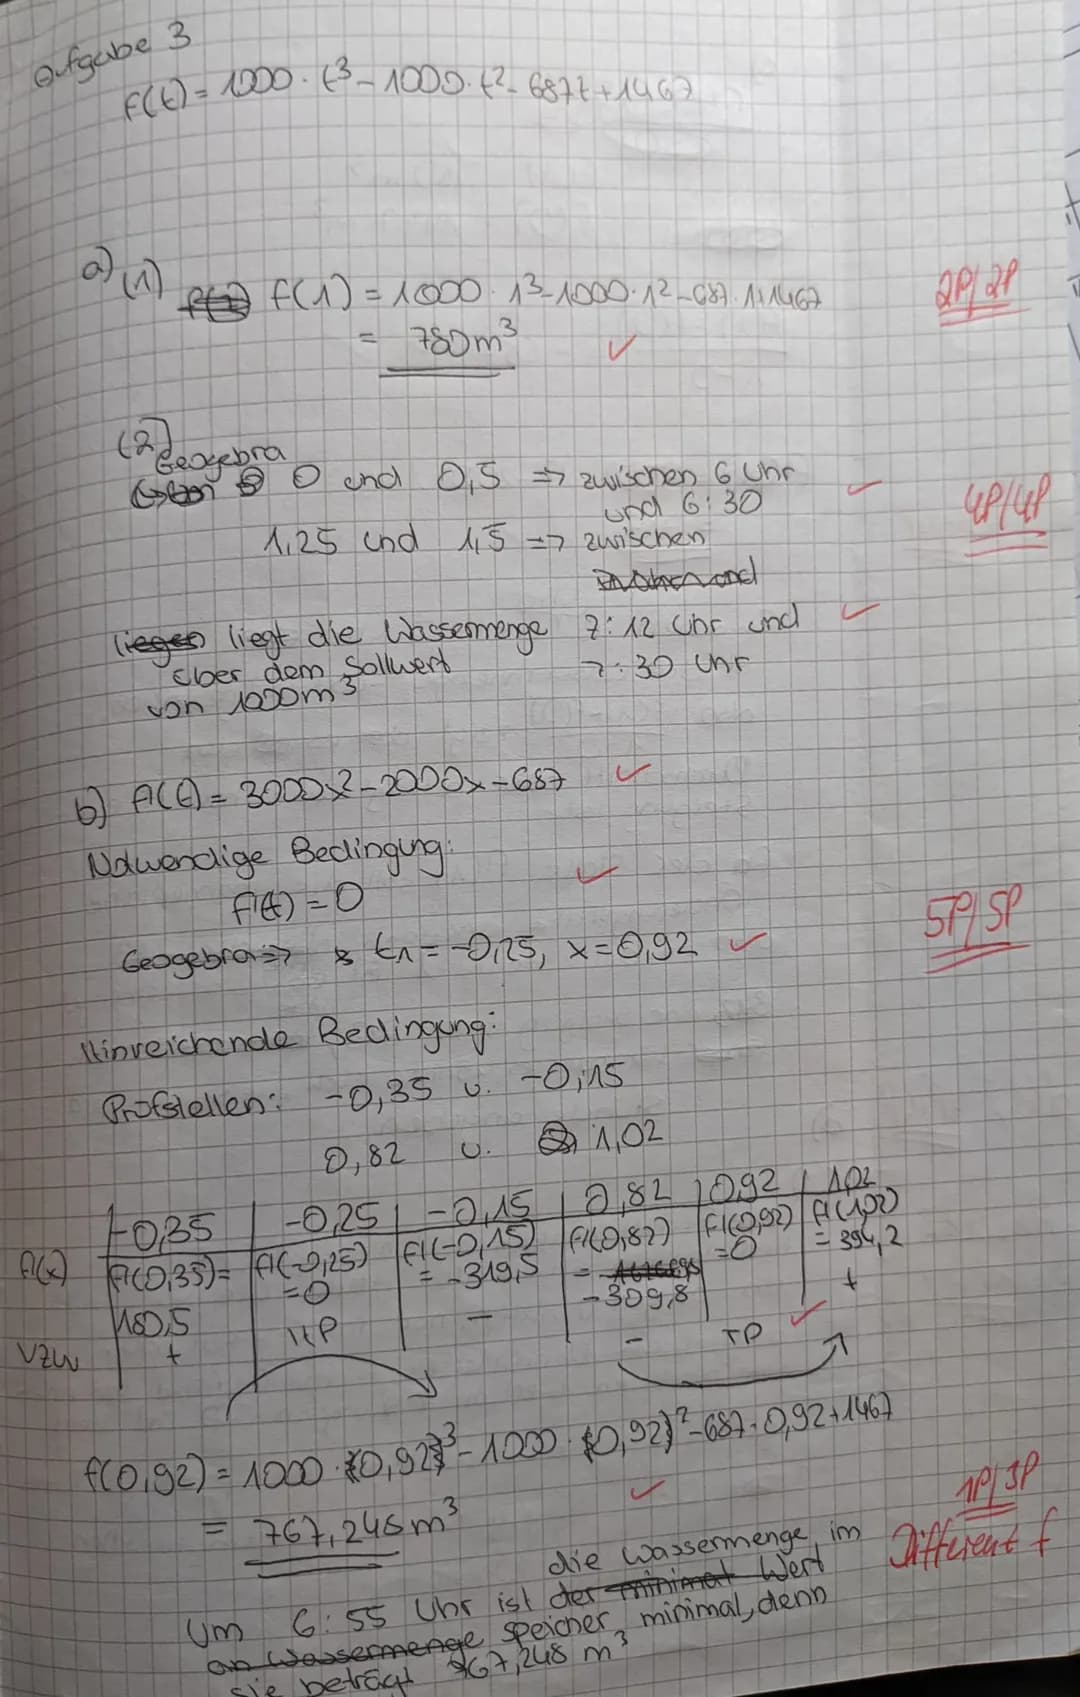 Aufgabe 3
f(t) = 1000 · t³ - 1000 · t² - 687t + 1467
a) (1) f(1) = 1000 · 1³ - 1000 · 1² - 687 · 1 + 1467
2P/2P
= 780 m³ ✓
(2)
Geogebra
0 und 0,5 => zwischen 6 Uhr ✓
und 6:30
4P/4P
1,25 und 1,5 => zwischen
liegen liegt die Wassermenge 7:12 Uhr und ✓
über dem Sollwert 7:30 Uhr
von 1000 m³
b) f'(t) = 3000x² - 2000x - 687 ✓
Notwendige Bedingung:
f'(t) = 0 ✓
5P/5P
Geogebra => t₁ = -0,25, x = 0,92 ✓
Hinreichende Bedingung:
Prüfstellen: -0,35 u. -0,15
0,82 u. 1,02
-0,35 | -0,25 | -0,15 | 0,82 | 0,92 | 1,02
f'(x) f'(0,35) = f'(-0,25) f'(-0,15) f'(0,82) f'(0,92) f'(1,02)
= 0 = -319,5 = -309,8 = 0 = 394,2
180,5 HP - - TP ✓ +
VZW +
f(0,92) = 1000 · (0,92)³ - 1000 · (0,92)² - 687 · 0,92 + 1467
= 767,248 m³ ✓
1P/3P
Different f
die Wassermenge im
Um 6:55 Uhr ist der minimal Wert
an Wassermenge Speicher minimal, denn
sie beträgt 767,248 m³